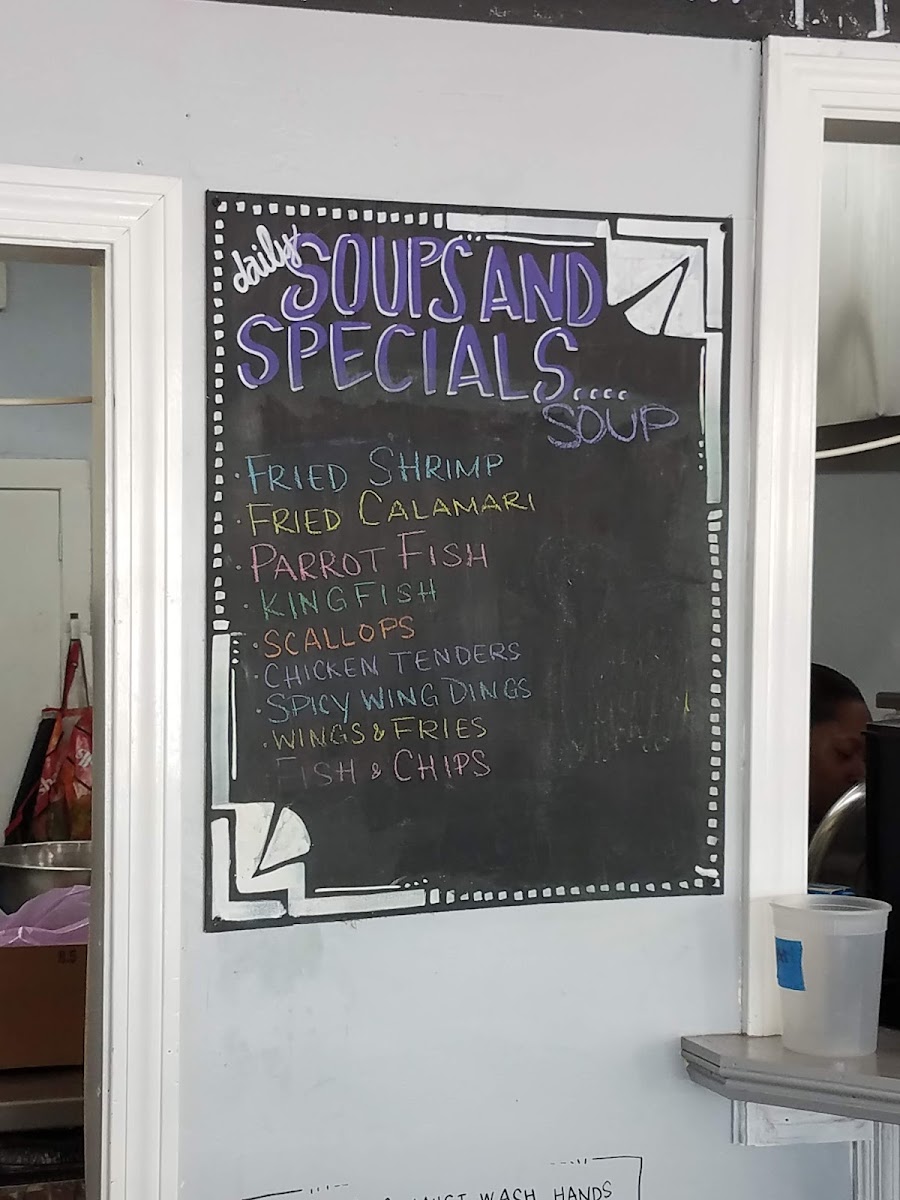 daily SOUPS AND
SPECIALS....
SOUP
· FRIED SHRIMP
· FRIED CALAMARI
· PARROT FISH
· KINGFISH
· SCALLOPS
· CHICKEN TENDERS
· SPICY WING DINGS
· WINGS & FRIES
FISH & CHIPS
WASH HANDS